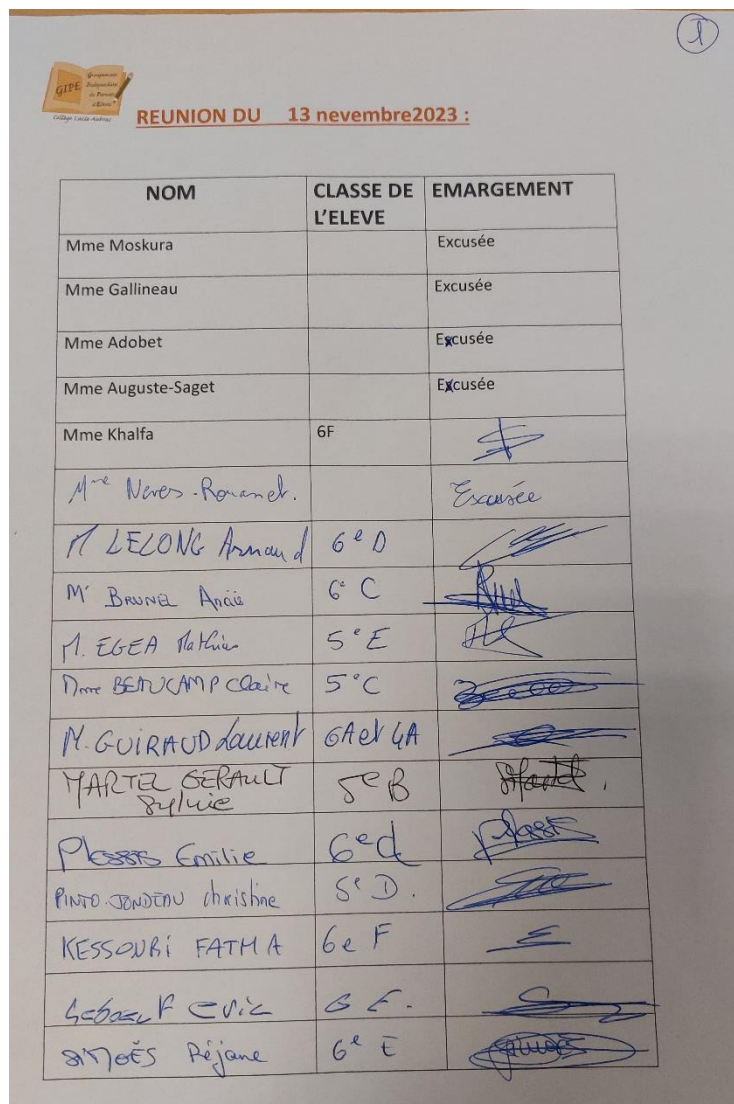 1
GIPE
Groupement
Indépendant
de Parents
d'Elèves
Collège Lucie Aubrac
REUNION DU 13 nevembre2023 :
NOM CLASSE DE L'ELEVE EMARGEMENT
Mme Moskura Excusée
Mme Gallineau Excusée
Mme Adobet Excusée
Mme Auguste-Saget Excusée
Mme Khalfa 6F
Mme Neves-Rouanet. Excusée
M LELONG Arnaud 6e D
Mr BRUNEL 6e C
M. EGEA Mathieu 5e E
Mme BEAUCAMP Claire 5e C
M. GUIRAUD Laurent 6A et 4A
MARTEL GERAULT Sylvie 5e B
Plessis Emilie 6e d
PINTO-JONDEAU christine 5e D.
KESSOURI FATMA 6e F
6 E.
SIMOËS Réjane 6e E